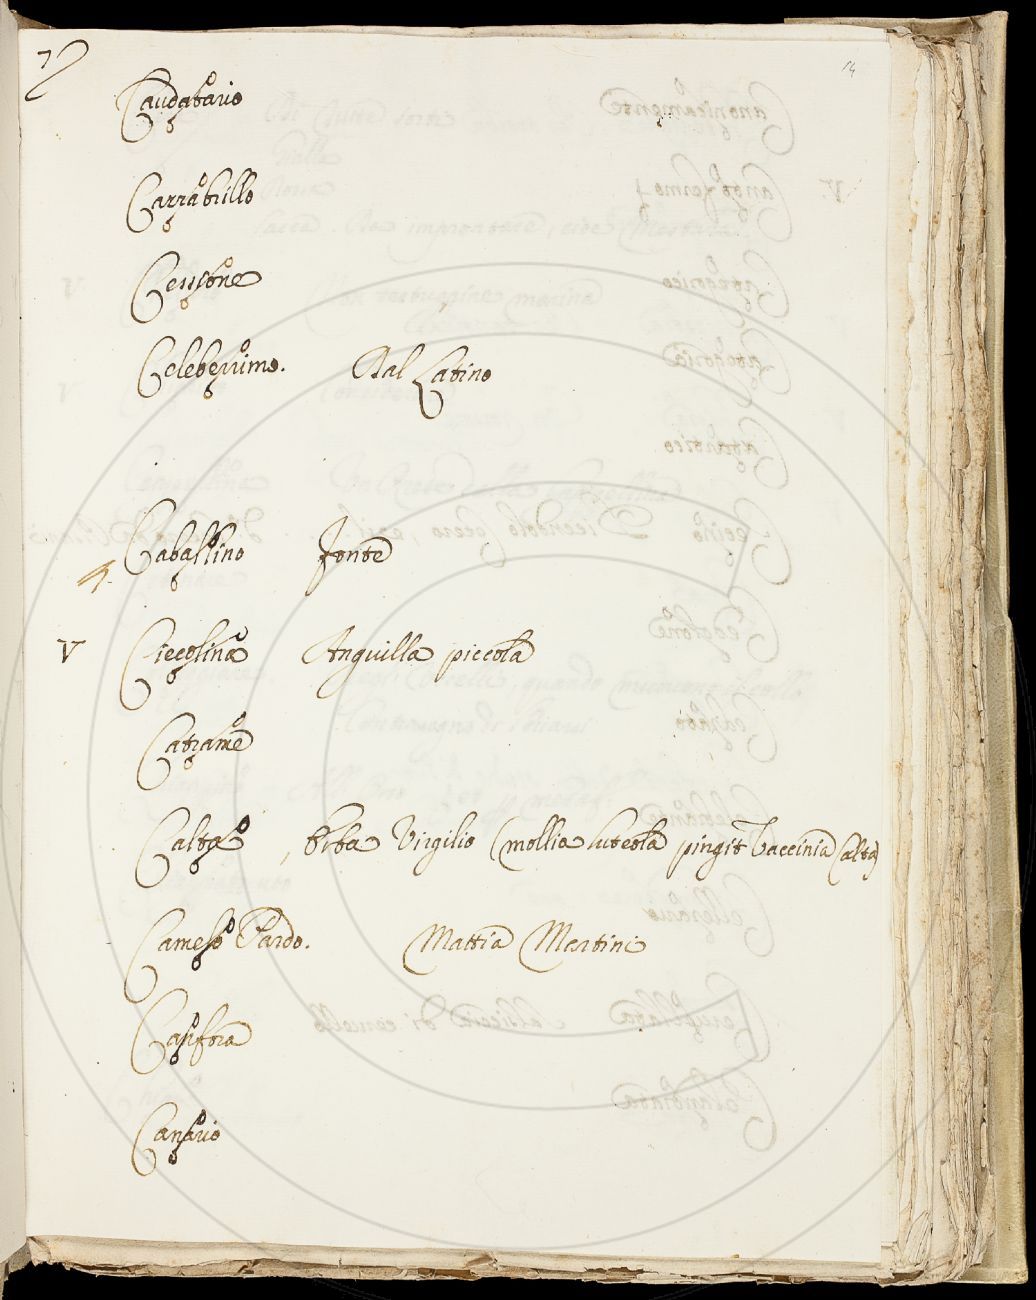 14
Caudatario
Carratrillo
Cessone
Celeberrimo. Dal Latino
Caballino fonte
V Ciecolina Anguilla piccola
Catrame
Calta, Erba Virgilio (mollia luteola pingit Vaccinia Calta)
Camelo Pardo. Mattia Martini
Casifora
Canario